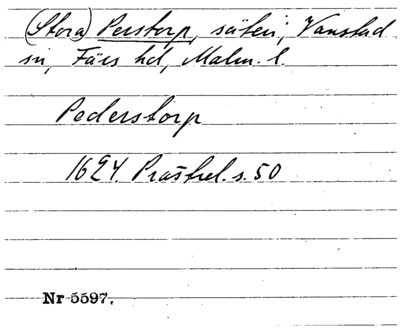 (Stora) Perstorp, säteri, Vanstad
sn, Färs hd, Malm. l.
Pederstorp
1624 Prästrel. s. 50
Nr 5597.